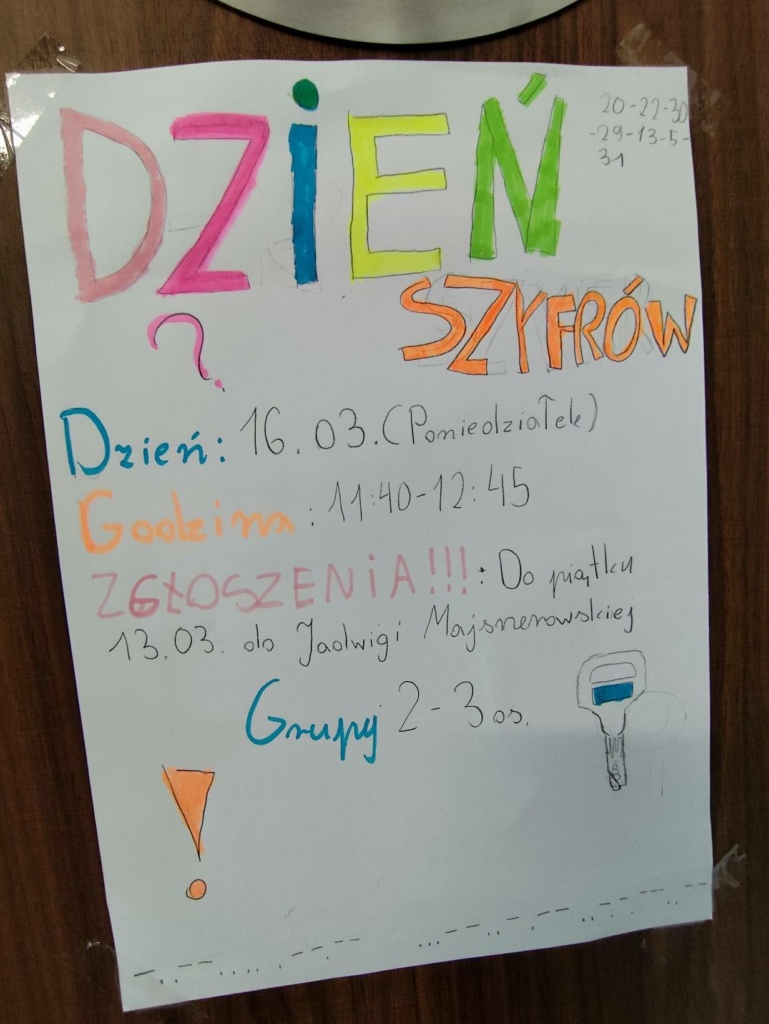 DZiEŃ
20-22-30
-29-13-5-
31
SZYFRÓW
?
Dzień: 16.03. (Poniedziałek)
Godzina: 11:40-12:45
ZGŁOSZENiA!!!: Do piątku
13.03. do Jadwigi Majsnerowskiej
Grupy 2-3 os.
!